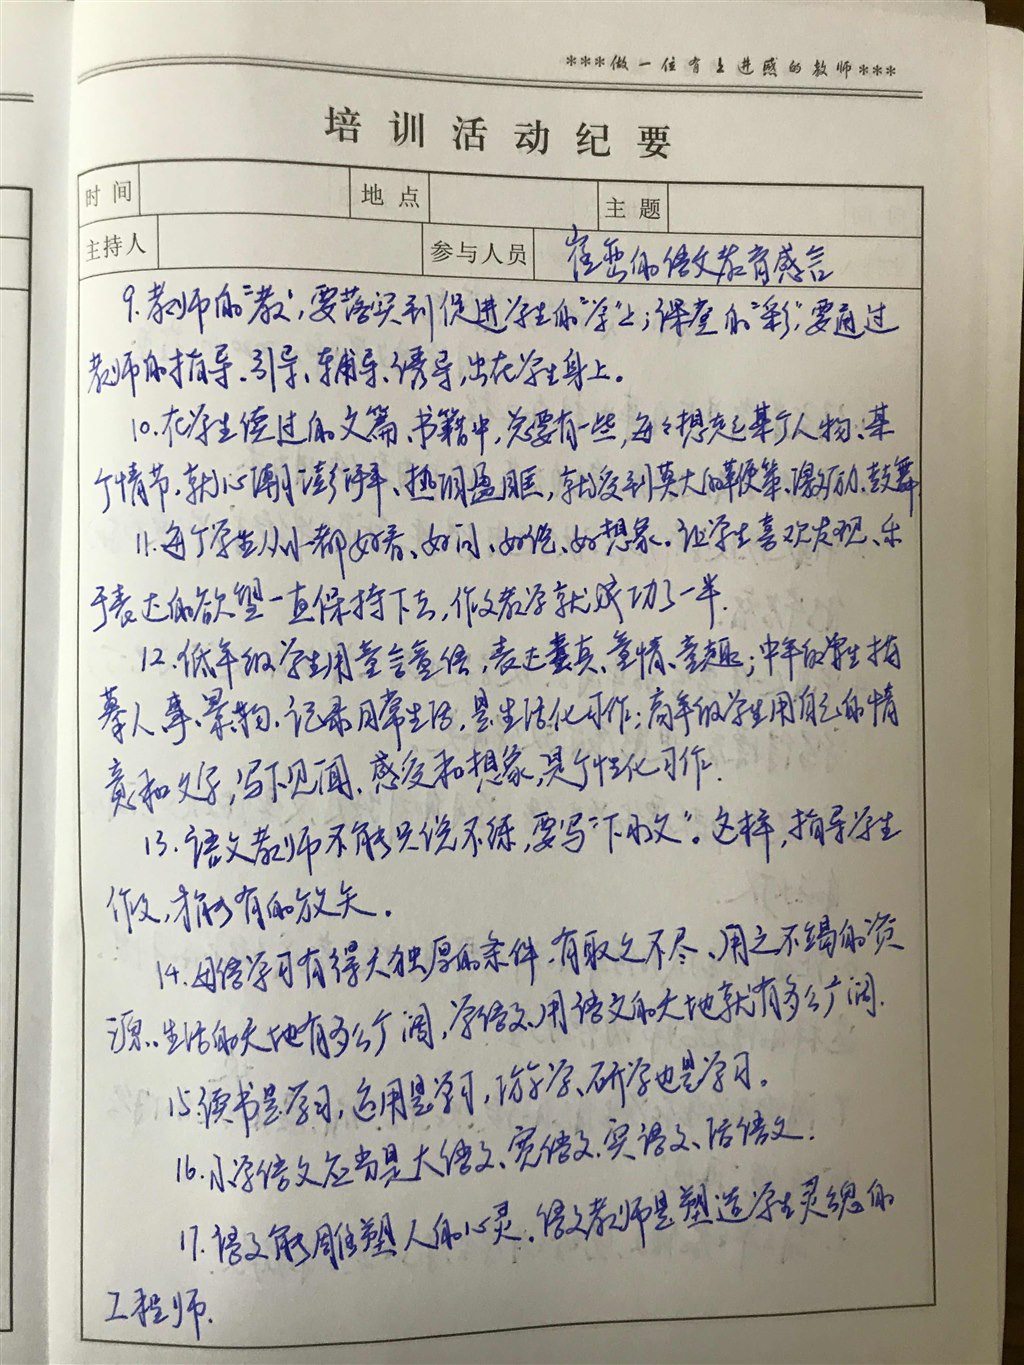 ***做一位有上进感的教师***
培训活动纪要
时间 地点 主题
主持人 参与人员 崔峦的语文教育感言
9.教师的“教”,要落实到促进学生的“学”上;课堂的“彩”要通过
教师的指导、引导、辅导、诱导,出在学生身上。
10.在学生读过的文篇、书籍中,总要有一些,每每想起某个人物、某
个情节,就心潮澎湃、热泪盈眶,就受到莫大的鞭策、激励、鼓舞
11.每个学生从小都好看、好问、好说、好想象。让学生喜欢发现、乐
于表达的欲望一直保持下去,作文教学就成功了一半.
12.低年级学生用童言童语,表达童真、童情、童趣;中年级学生描
摹人、事、景、物、记录日常生活,是生活化习作;高年级学生用自己的情
意和文字,写下见闻、感受和想象,是个性化习作.
13.语文教师不能只说不练,要写“下水文”。这样,指导学生
作文,才能有的放矢。
14.母语学习有得天独厚的条件,有取之不尽、用之不竭的资
源、生活的天地有多么广阔,学语文、用语文的天地就有多么广阔.
15.读书是学习,运用是学习,游学、研学也是学习。
16.小学语文应当是大语文、宽语文、实语文、活语文.
17.语文能雕塑人的心灵。语文教师是塑造学生灵魂的
工程师.